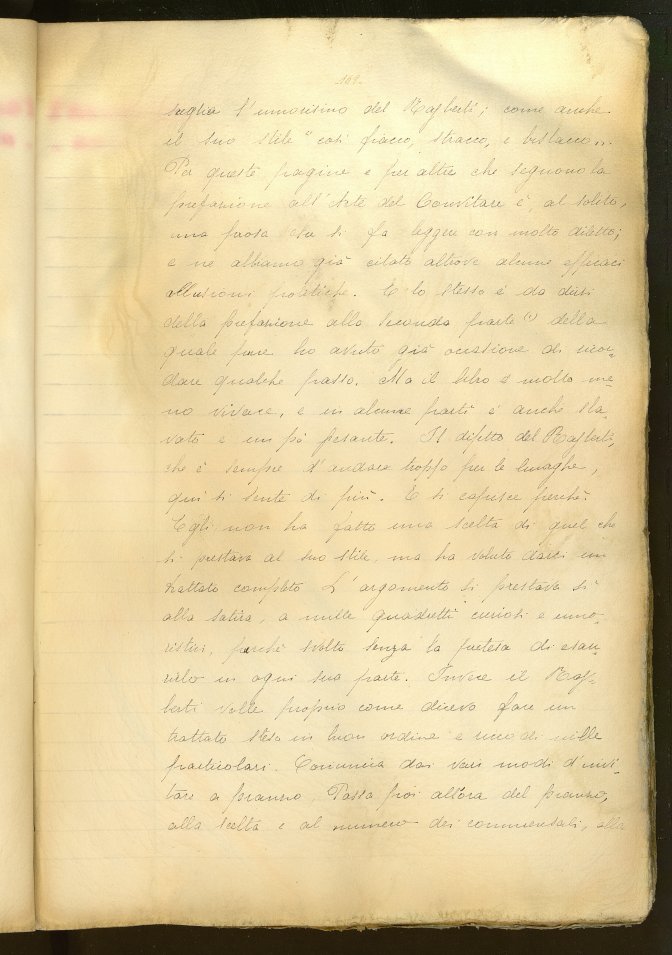 169.
soglia l'umorismo del Rajberti; come anche
il suo stile "così fiacco, stracco, e bislacco...
Per queste pagine e per altre che seguono la
prefazione all'Arte del Convitare è, al solito,
una prosa che si fa leggere con molto diletto;
e ne abbiamo già citato altrove alcune efficaci
allusioni politiche. E lo stesso è da dirsi
della prefazione alla seconda parte (1) della
quale pure ho avuto già occasione di ricor-
dare qualche passo. Ma il libro è molto me-
no vivace, e in alcune parti è anche sla-
vato e un pò pesante. Il difetto del Rajberti,
che è sempre d'andare troppo per le lunghe,
qui si sente di più. E si capisce perchè.
Egli non ha fatto una scelta di quel che
si prestava al suo stile, ma ha voluto darci un
trattato completo. L'argomento si prestava sì
alla satira, a mille quadretti curiosi e umo-
ristici, purchè svolto senza la pretesa di esau-
rirlo in ogni sua parte. Invece il Raj-
berti volle proprio come dicevo fare un
trattato steso in buon ordine e ricco di mille
particolari. Comincia dai vari modi d'invi-
tare a pranzo. Passa poi all'ora del pranzo,
alla scelta e al numero dei commensali, alla